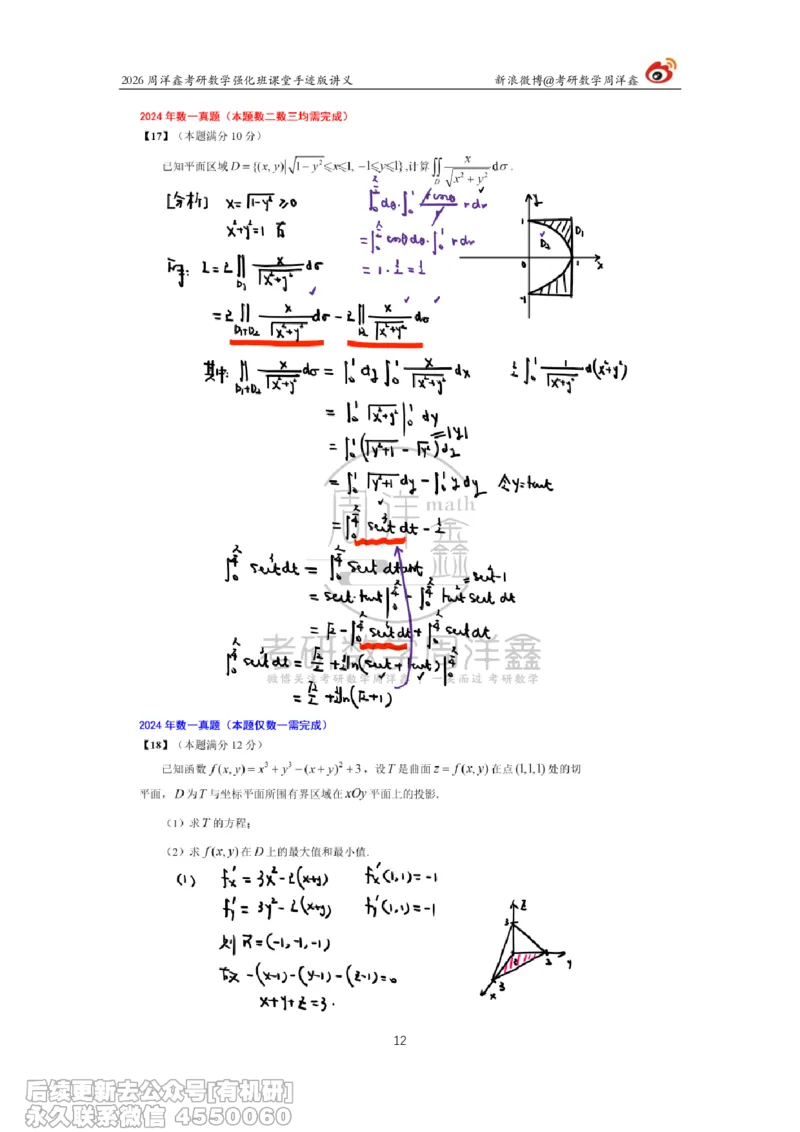 2026 周洋鑫考研数学强化班课堂手迹版讲义 新浪微博@考研数学周洋鑫
2024 年数一真题（本题数二数三均需完成）
【17】（本题满分 10 分）
已知平面区域 D = {(x, y)| √(1−y²) ⩽x⩽1, −1⩽y⩽1},计算 ∬_D x/√(x²+y²) dσ .
[分析] x=√(1-y²) ≥0
x²+y²=1 右
∫_0^{π/2} dθ·∫_0^1 rcosθ/r rdr
=∫_0^{π/2} cosθdθ·∫_0^1 rdr
= 1·1/2=1/2
y
1
D₁
D₂
0
1
x
-1
I=2∬_{D₁} x/√(x²+y²) dσ
=2∬_{D₁+D₂} x/√(x²+y²) dσ - 2∬_{D₂} x/√(x²+y²) dσ
其中: ∬_{D₁+D₂} x/√(x²+y²) dσ = ∫_0^1 dy ∫_0^1 x/√(x²+y²) dx
1/2 ∫_0^1 1/√(x²+y²) d(x²+y²)
= ∫_0^1 √(x²+y²) |_0^1 dy
=|y|
= ∫_0^1 (√(y²+1) - √y²) dy
= ∫_0^1 √(y²+1) dy - ∫_0^1 y dy 令y=tant
=∫_0^{π/4} sec³t dt - 1/2
∫_0^{π/4} sec³t dt = ∫_0^{π/4} sect dtant
=sec²t-1
= sect·tant |_0^{π/4} - ∫_0^{π/4} tan²t sect dt
= √2 - ∫_0^{π/4} sec³t dt + ∫_0^{π/4} sect dt
∫_0^{π/4} sec³t dt = √2/2 + 1/2 ln(sect+tant) |_0^{π/4}
= √2/2 + 1/2 ln(√2+1)
周洋鑫
math
考研数学周洋鑫
2024 年数一真题（本题仅数一需完成）
【18】（本题满分 12 分）
已知函数 f(x, y) = x³ + y³ − (x + y)² + 3，设 T 是曲面 z = f(x, y) 在点 (1,1,1) 处的切
平面，D 为 T 与坐标平面所围有界区域在 xOy 平面上的投影.
（1）求 T 的方程；
（2）求 f(x, y) 在 D 上的最大值和最小值.
(1) f'x = 3x²-2(x+y) f'x(1,1)=-1
f'y = 3y²-2(x+y) f'y(1,1)=-1
则 n=(-1,-1,-1)
故 -(x-1)-(y-1)-(z-1)=0
x+y+z=3.
z
3
0
3
y
3
x
12
后续更新去公众号[有机研]
永久联系微信 4550060